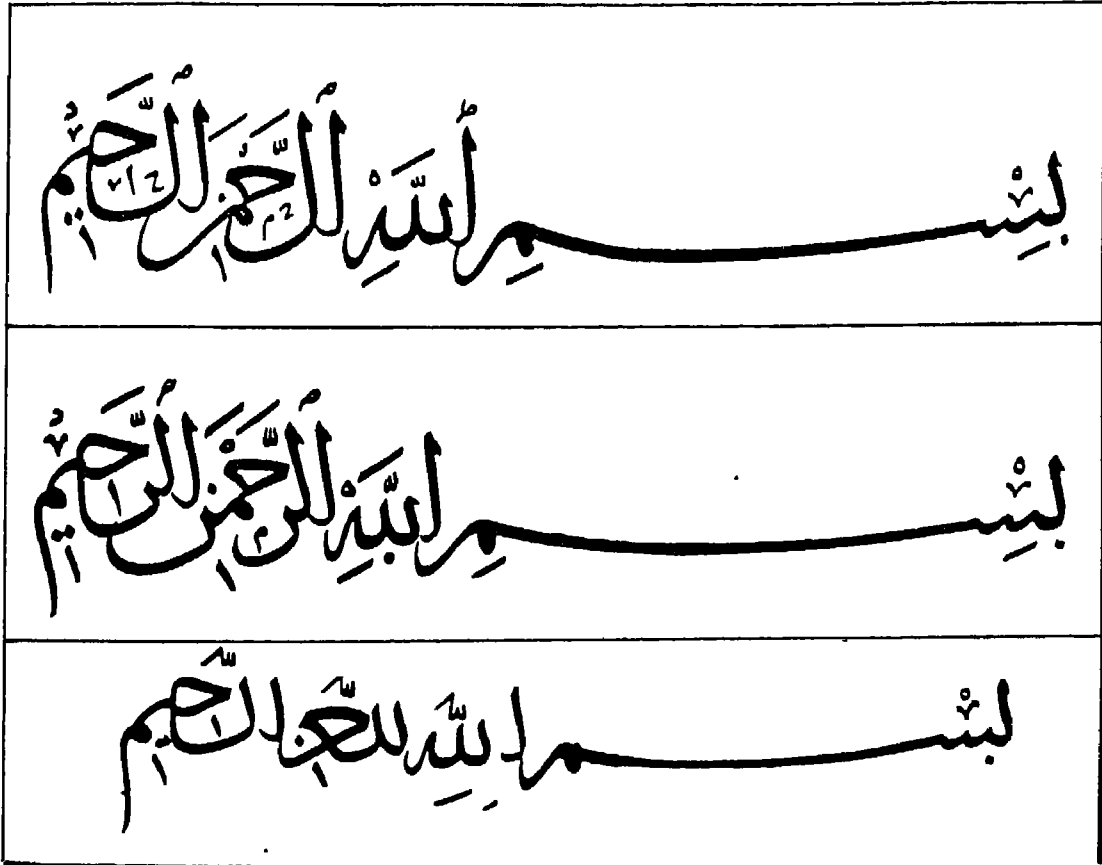 بِسْمِ ٱللَّهِ ٱلرَّحْمَٰنِ ٱلرَّحِيمُ
بِسْمِ اللَّهِ ٱلرَّحْمَٰنَ ٱلرَّحِيمُ
بسْم اللّهِ الرَّحمن الرَّحيم